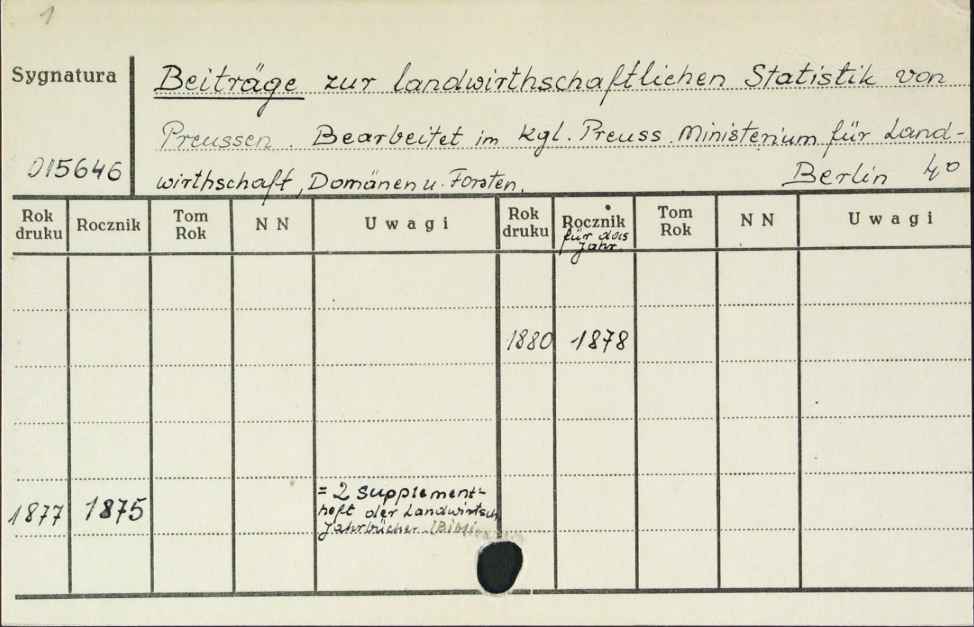 1
Sygnatura
015646
Beiträge zur landwirthschaftlichen Statistik von
Preussen. Bearbeitet im Kgl. Preuss. Ministerium für Land-
wirthschaft, Domänen u. Forsten. Berlin 4°
Rok druku Rocznik Tom Rok N N Uwagi Rok druku Rocznik für das Jahr. Tom Rok N N Uwagi
1880 1878
1877 1875 = 2 Supplement-
heft der Landwirtsch.
Jahrbücher